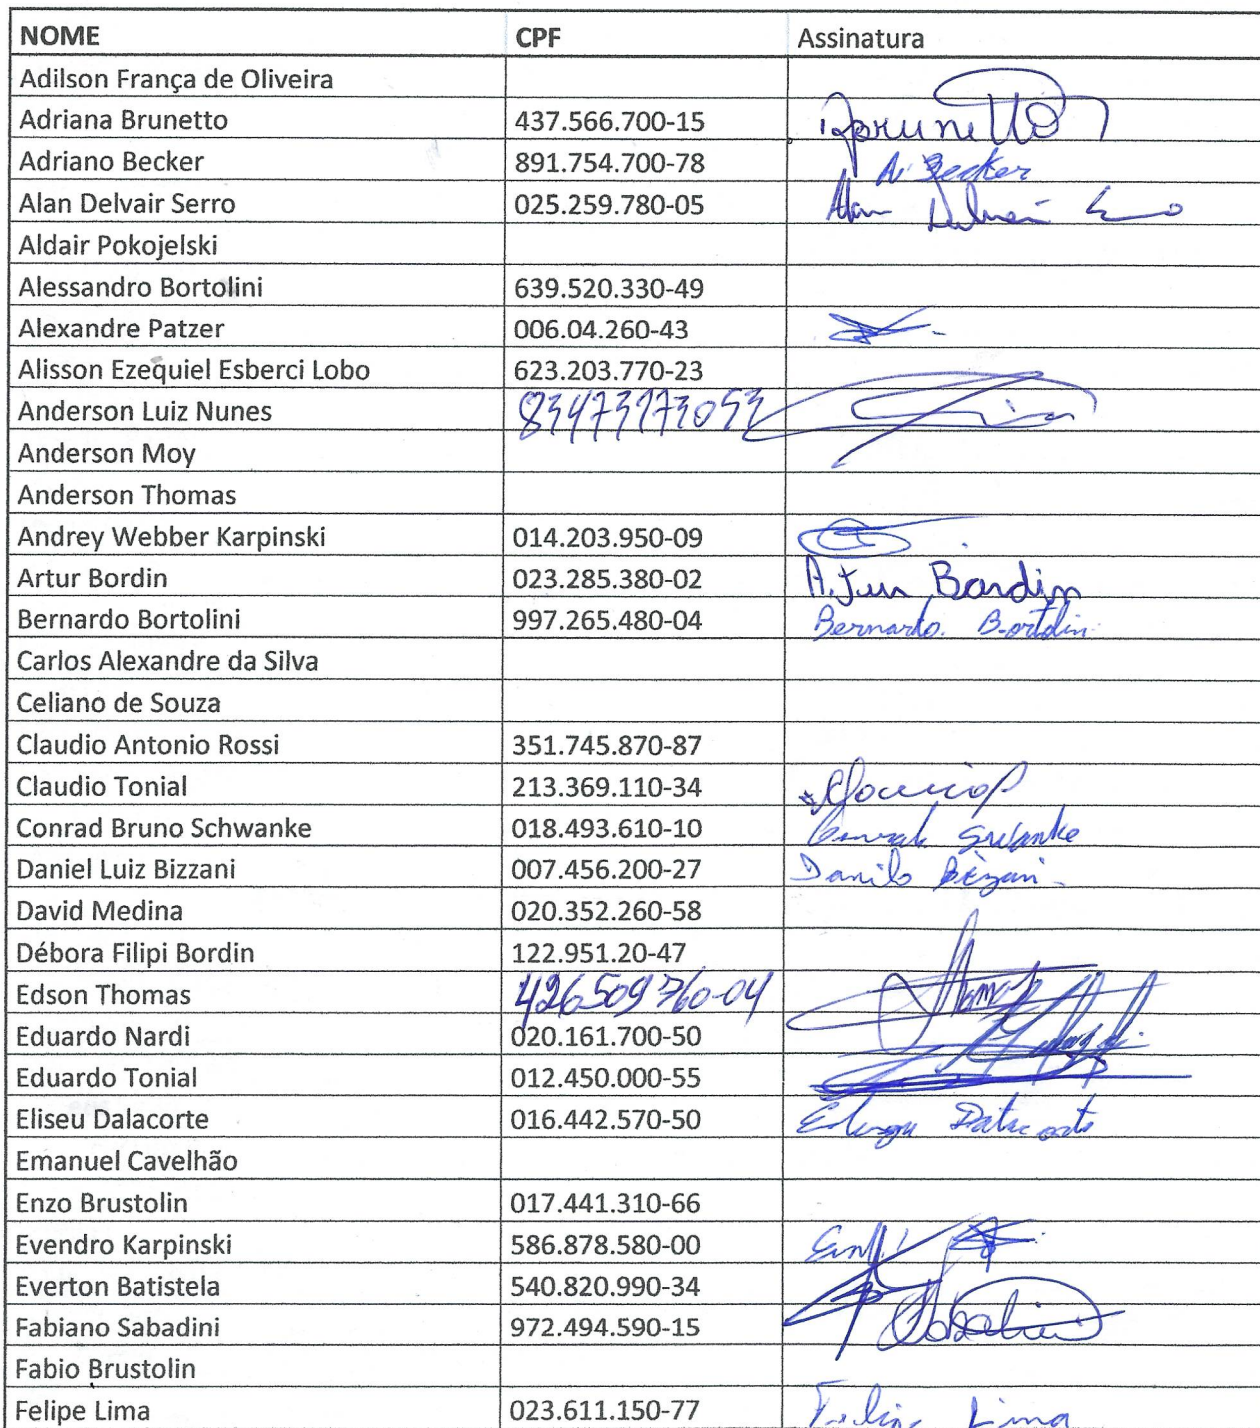 NOME CPF Assinatura
Adilson França de Oliveira
Adriana Brunetto 437.566.700-15 Brunetto
Adriano Becker 891.754.700-78 A. Becker
Alan Delvair Serro 025.259.780-05 Alan
Aldair Pokojelski
Alessandro Bortolini 639.520.330-49
Alexandre Patzer 006.04.260-43
Alisson Ezequiel Esberci Lobo 623.203.770-23
Anderson Luiz Nunes 83473173053
Anderson Moy
Anderson Thomas
Andrey Webber Karpinski 014.203.950-09
Artur Bordin 023.285.380-02 Bordin
Bernardo Bortolini 997.265.480-04 Bernardo Bortolin
Carlos Alexandre da Silva
Celiano de Souza
Claudio Antonio Rossi 351.745.870-87
Claudio Tonial 213.369.110-34
Conrad Bruno Schwanke 018.493.610-10
Daniel Luiz Bizzani 007.456.200-27 Danilo
David Medina 020.352.260-58
Débora Filipi Bordin 122.951.20-47
Edson Thomas 426509760-04
Eduardo Nardi 020.161.700-50
Eduardo Tonial 012.450.000-55
Eliseu Dalacorte 016.442.570-50
Emanuel Cavelhão
Enzo Brustolin 017.441.310-66
Evendro Karpinski 586.878.580-00
Everton Batistela 540.820.990-34
Fabiano Sabadini 972.494.590-15
Fabio Brustolin
Felipe Lima 023.611.150-77 Felipe Lima